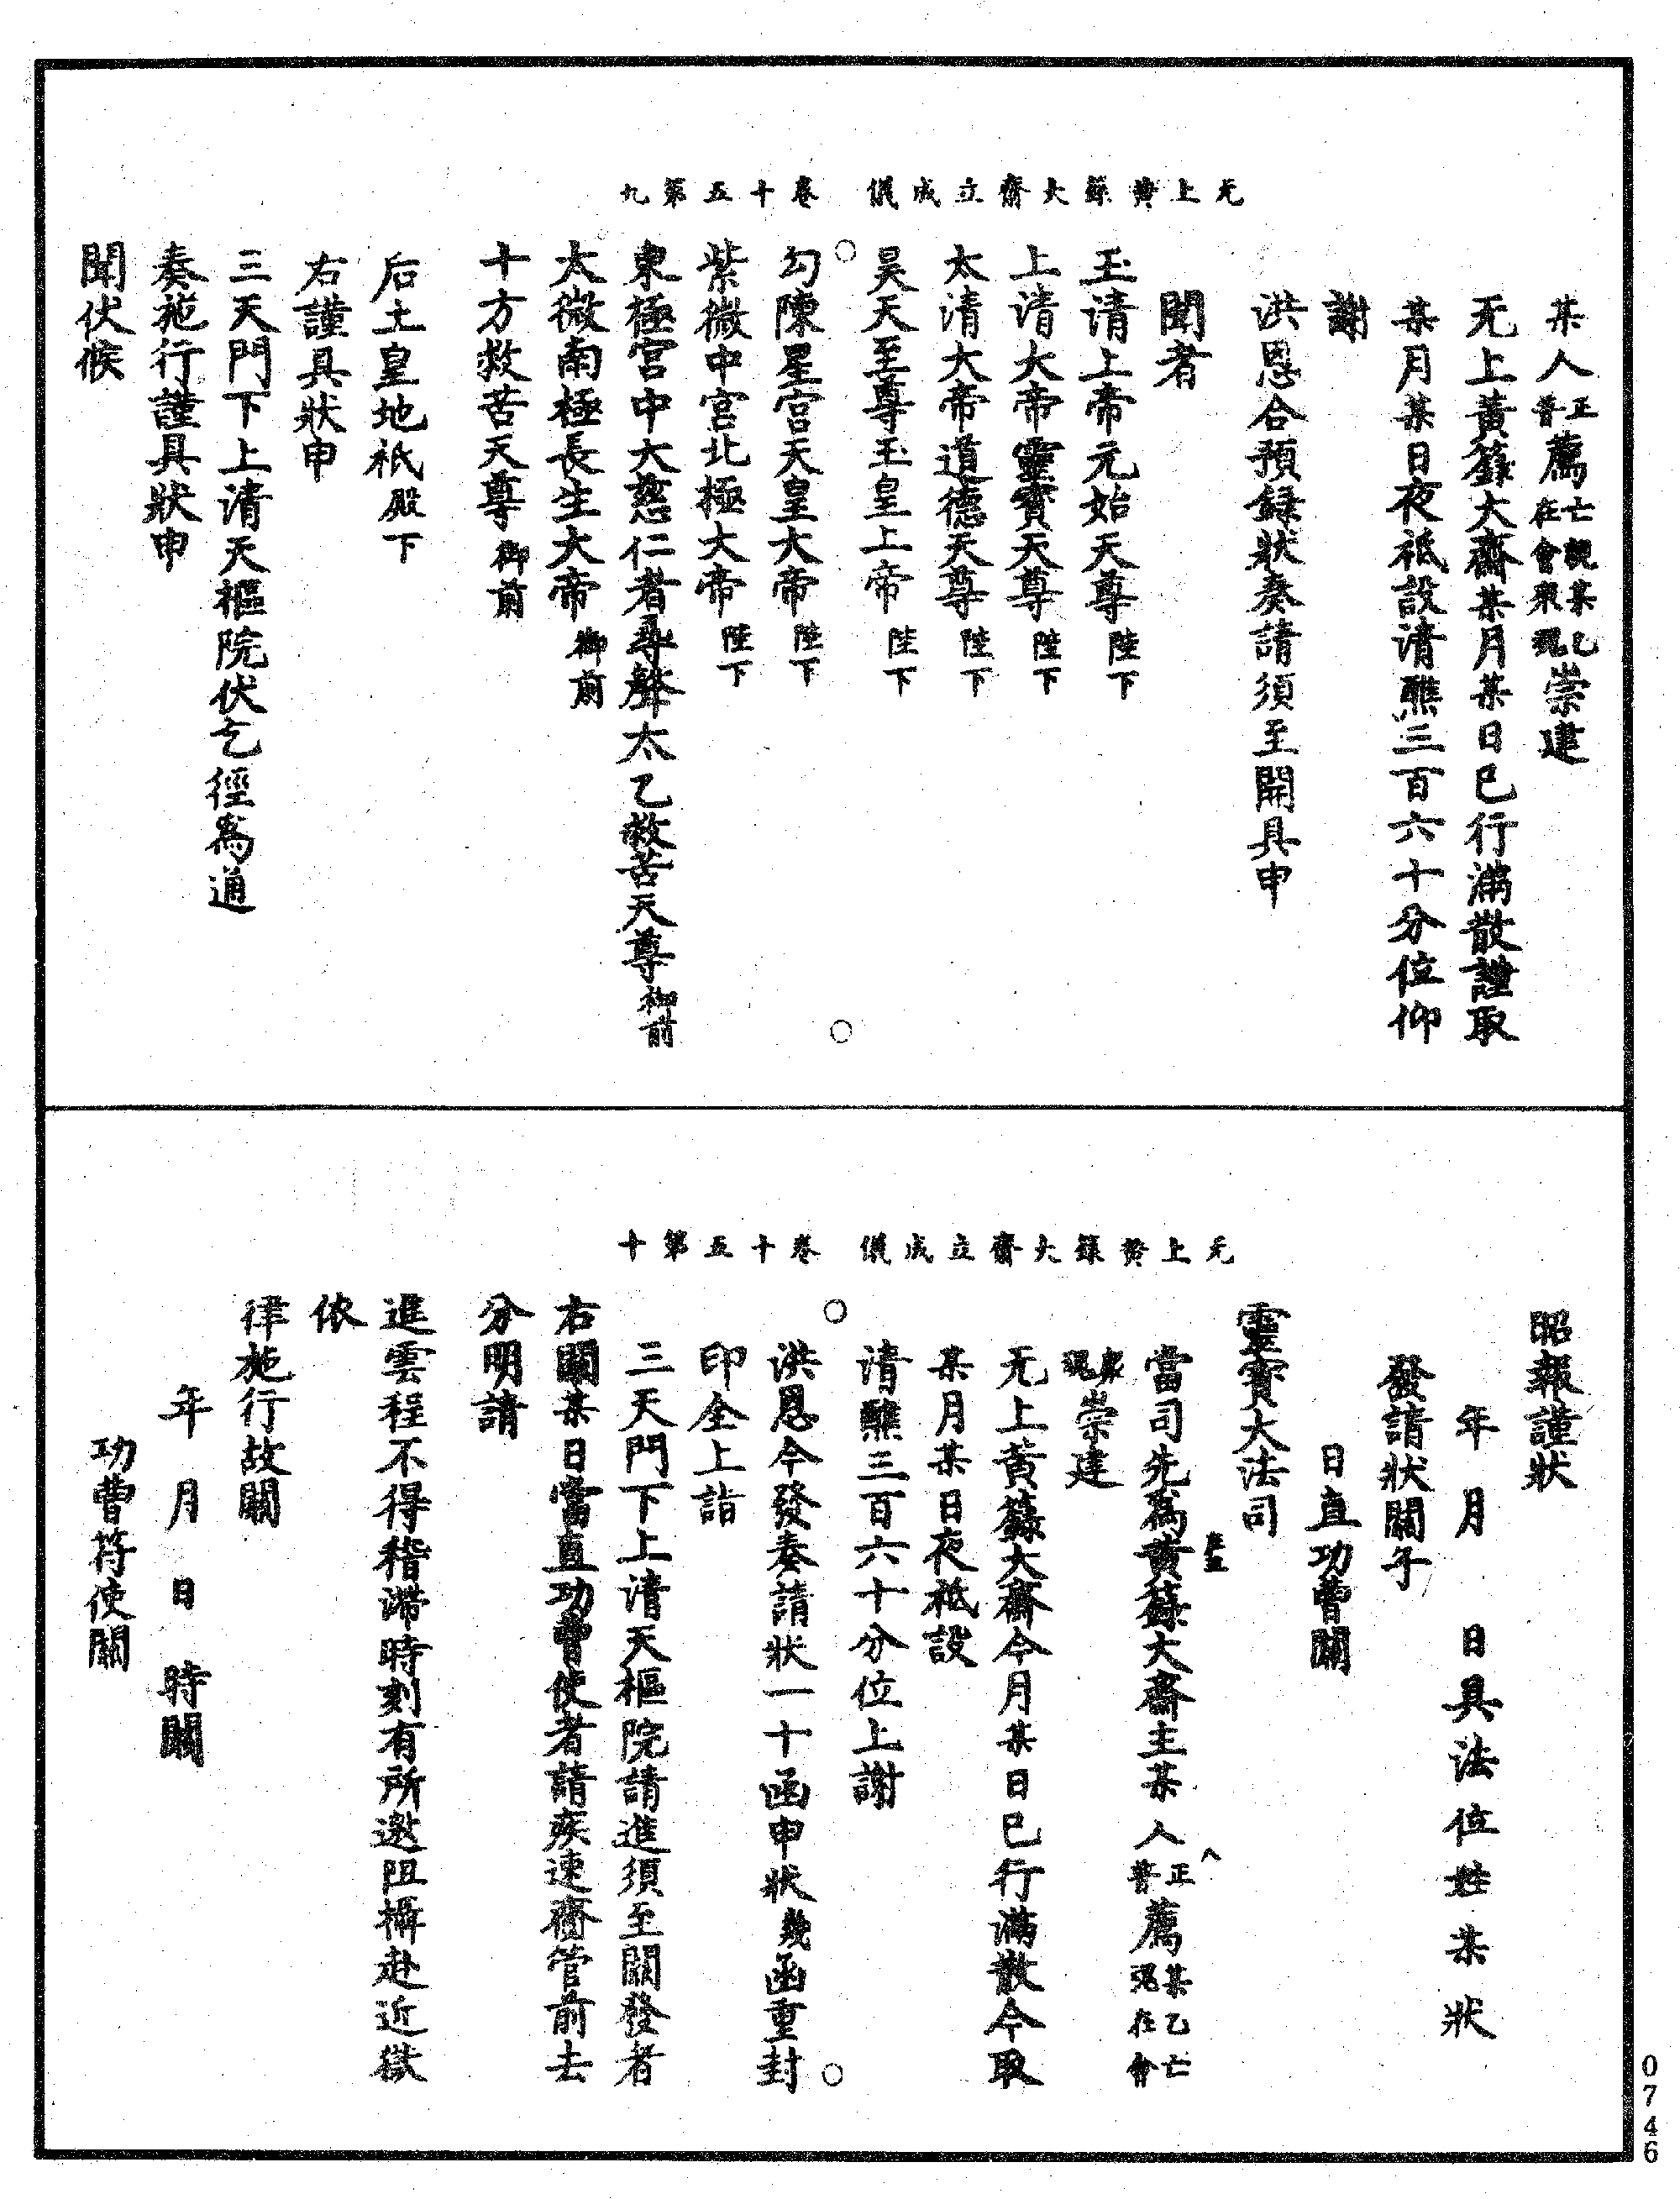 某人正普薦亡魂某乙在會衆魂崇建
无上黃籙大齋某月某日已行滿散謹取
某月某日夜祗設清醮三百六十分位仰
謝
洪恩合預録狀奏請須至開具申
聞者
玉清上帝元始天尊陛下
上清大帝靈寶天尊陛下
太清大帝道德天尊陛下
昊天至尊玉皇上帝陛下
无上黃籙大齋立成儀 卷十五第九
勾陳星宮天皇大帝陛下
紫微中宮北極大帝陛下
東極宮中大慈仁者尋聲太乙救苦天尊御前
太微南極長生大帝御前
十方救苦天尊御前
后土皇地祇殿下
右謹具狀申
三天門下上清天樞院伏乞徑爲通
奏施行謹具狀申
聞伏候
昭報謹狀
年 月 日具法位姓某狀
發請狀關午
日直功曹關
靈寶大法司
當司先爲黃籙大齋主某人正普薦某乙亡魂在會
衆魂崇建
无上黃籙大齋今月某日已行滿散今取
某月某日夜祗設
清醮三百六十分位上謝
无上黃籙大齋立成儀 卷十五第十
洪恩今發奏請狀一十函申狀幾函重封
印全上詣
三天門下上清天樞院請進須至關發者
右關某日當直功曹使者請疾速齎管前去
分明請
進雲程不得稽滯時刻有所邀阻攝赴近獄
依
律施行故關
年 月 日 時關
功曹符使關
0746